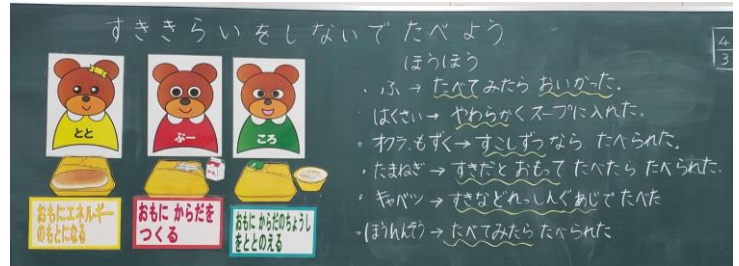 すききらいをしないで たべよう
ほうほう
4
3
とと
ぶー
ころ
おもにエネルギー
のもとになる
おもに からだを
つくる
おもに からだのちょうし
をととのえる
・ふ → たべてみたら おいかった。
はくさい→ やわらかくスープに入れた。
・オクラ.もずく→すこしずつなら たべられた。
・たまねぎ→すきだと おもって たべたら たべられた.
・キャベツ→すきなどれっしんぐあじで たべた
・ほうれんそう→たべてみたら たべられた